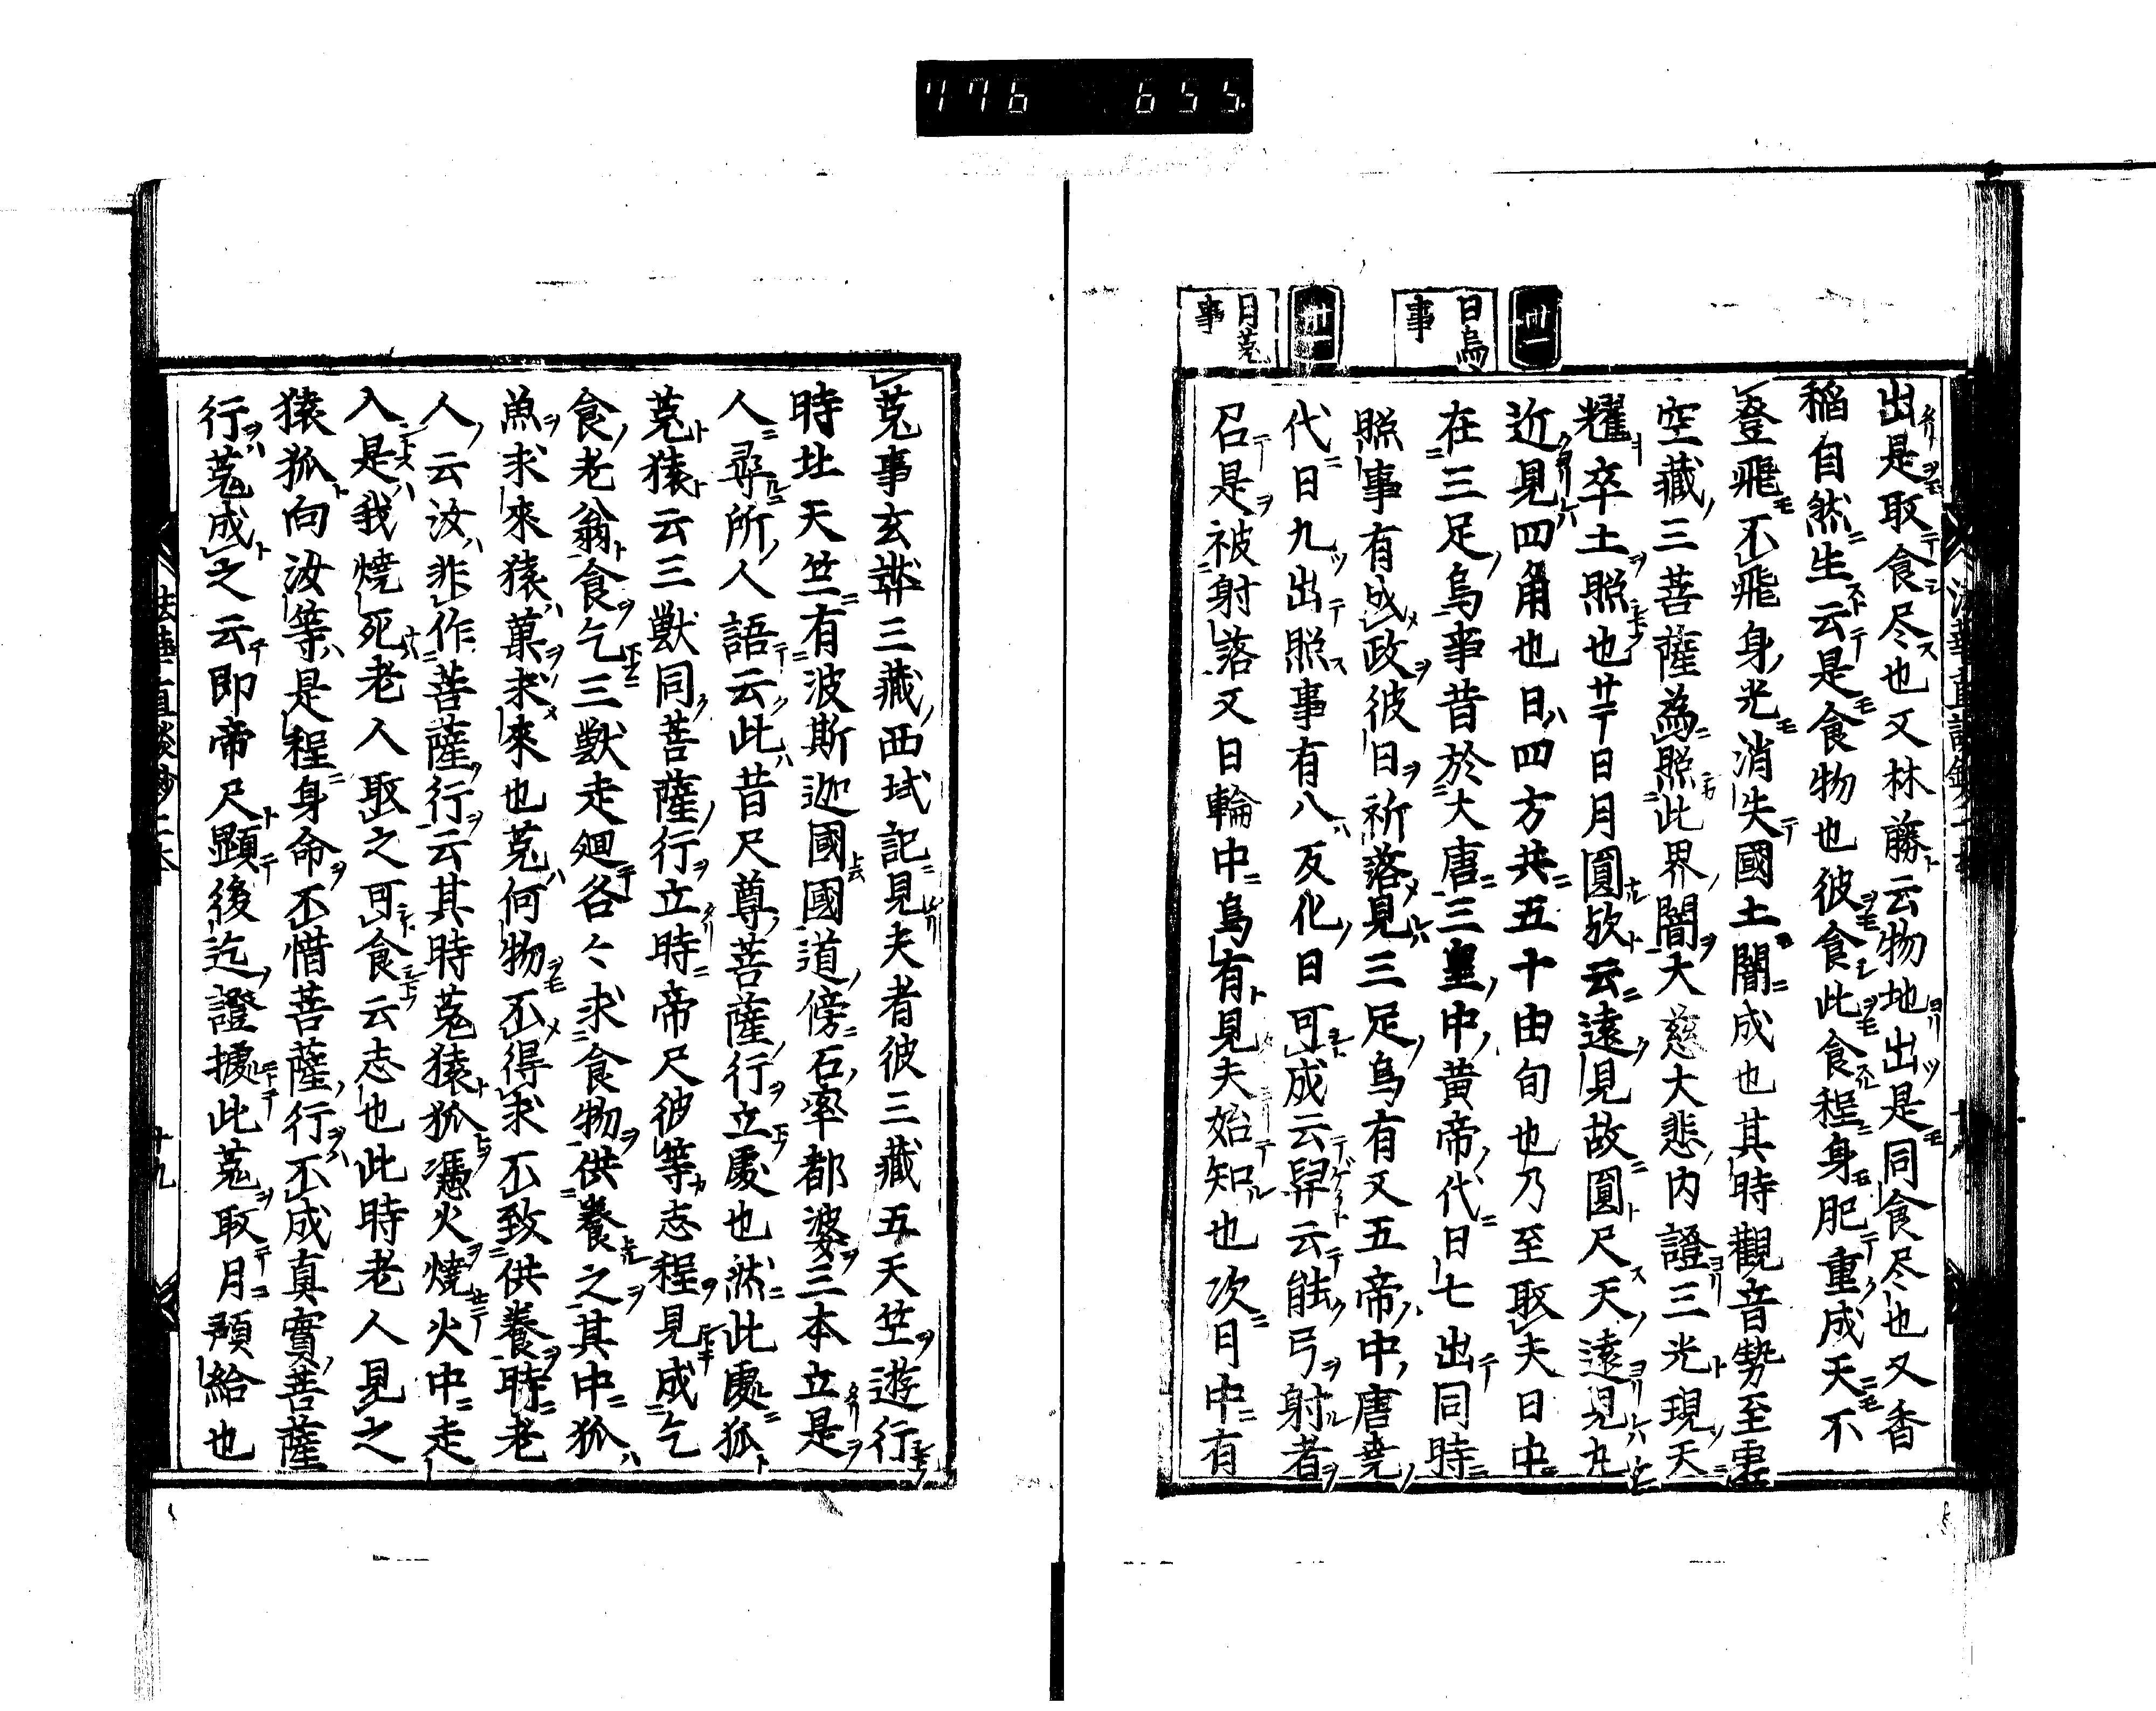 776 655
日烏
事
月菟
事
出是取食尽也又林藤云物地出是同食尽也又香
稲自然生云是食物也彼食此食程身肥重成天不
登飛不飛身光消失國土闇成也其時觀音勢至虚
空藏三菩薩為照此界闇大慈大悲内證三光現天
耀卒土照也廿日月圓歟云遠見故圓尺天遠見
近見四角也日四方共五十由旬也乃至取夫日中
在三足烏事昔於大唐三皇中黄帝代日七出同時
照事有成政彼日祈落見三足烏有又五帝中唐堯
代日九出照事有八反化日可成云羿云能弓射者
召是被射落又日輪中烏有見夫始知也次月中有
菟事玄弉三藏西域記見夫者彼三藏五天竺遊行
時北天竺有波斯迦國國道傍石率都婆三本立是
人尋所人語云此昔尺尊菩薩行立處也然此處狐
菟猿云三獣同菩薩行立時帝尺彼等志程見成乞
食老翁食乞三獣走廻各々求食物供養之其中狐
魚求來猿菓求來也菟何物不得求不致供養時老
人云汝非作菩薩行云其時菟猿狐憑火燒火中走
入是我燒死老人取之可食云志也此時老人見之
猿狐向汝等是程身命不惜菩薩行不成真實菩薩
行菟成之云即帝尺顯後迄證據此菟取月預給也
十九